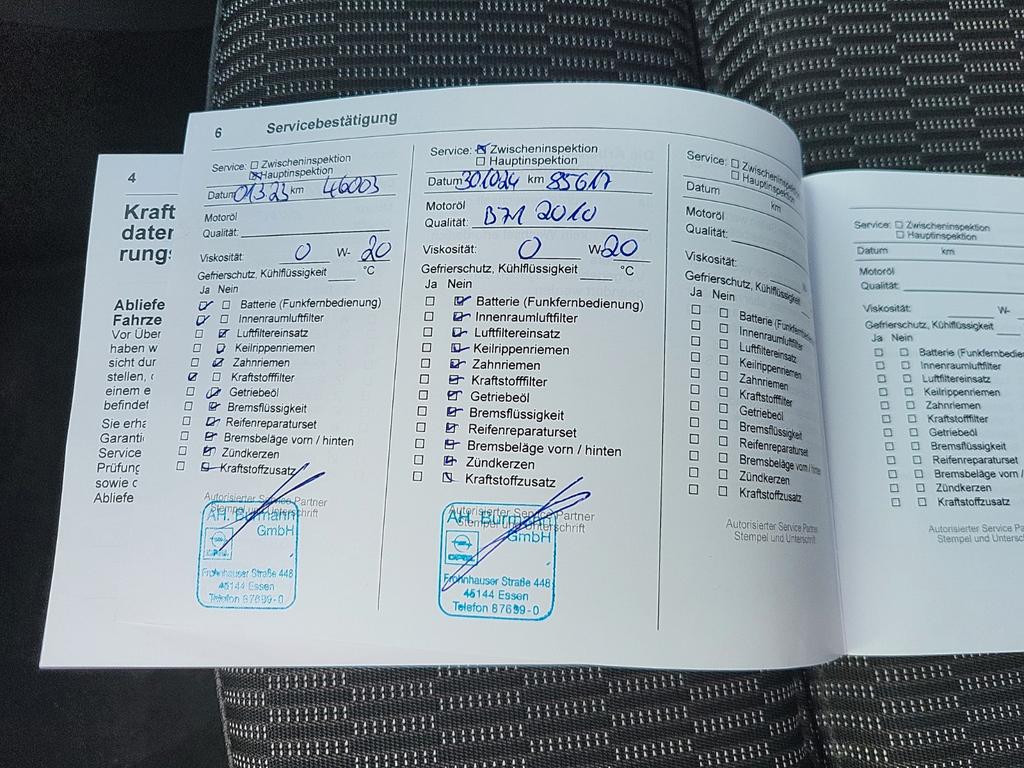 6 Servicebestätigung
Service: Zwischeninspektion
Hauptinspektion
Datum 01.3.23 km 46003
Motoröl
Qualität:
Viskosität: 0 W- 20
Gefrierschutz, Kühlflüssigkeit °C
Ja Nein
Batterie (Funkfernbedienung)
Innenraumluftfilter
Luftfiltereinsatz
Keilrippenriemen
Zahnriemen
Kraftstofffilter
Getriebeöl
Bremsflüssigkeit
Reifenreparaturset
Bremsbeläge vorn / hinten
Zündkerzen
Kraftstoffzusatz
Autorisierter Service Partner
Stempel und Unterschrift
AH. Burmann
GmbH
OPEL
Frohnhauser Straße 448
45144 Essen
Telefon 87699-0
Service: Zwischeninspektion
Hauptinspektion
Datum 301024 km 85617
Motoröl
Qualität: B71 2010
Viskosität: 0 W- 20
Gefrierschutz, Kühlflüssigkeit °C
Ja Nein
Batterie (Funkfernbedienung)
Innenraumluftfilter
Luftfiltereinsatz
Keilrippenriemen
Zahnriemen
Kraftstofffilter
Getriebeöl
Bremsflüssigkeit
Reifenreparaturset
Bremsbeläge vorn / hinten
Zündkerzen
Kraftstoffzusatz
Autorisierter Service Partner
Stempel und Unterschrift
AH. Burmann
GmbH
OPEL
Frohnhauser Straße 448
45144 Essen
Telefon 87699-0
Service: Zwischeninspektion
Hauptinspektion
Datum km
Motoröl
Qualität:
Viskosität:
Gefrierschutz, Kühlflüssigkeit
Ja Nein
Batterie (Funkfernb
Innenraumluftfilter
Luftfiltereinsatz
Keilrippenriemen
Zahnriemen
Kraftstofffilter
Getriebeöl
Bremsflüssigkeit
Reifenreparaturset
Bremsbeläge vorn / hinten
Zündkerzen
Kraftstoffzusatz
Autorisierter Service Partne
Stempel und Unterschrift
4
Kraft
daten
rungs
Abliefe
Fahrze
Vor Über
haben w
sicht dur
stellen, d
einem e
befindet
Sie erha
Garanti
Service
Prüfung
sowie d
Abliefe
Service: Zwischeninspektion
Hauptinspektion
Datum km
Motoröl
Qualität:
Viskosität: W-
Gefrierschutz, Kühlflüssigkeit
Ja Nein
Batterie (Funkfernbedie
Innenraumluftfilter
Luftfiltereinsatz
Keilrippenriemen
Zahnriemen
Kraftstofffilter
Getriebeöl
Bremsflüssigkeit
Reifenreparaturset
Bremsbeläge vorn /
Zündkerzen
Kraftstoffzusatz
Autorisierter Service Pa
Stempel und Untersch